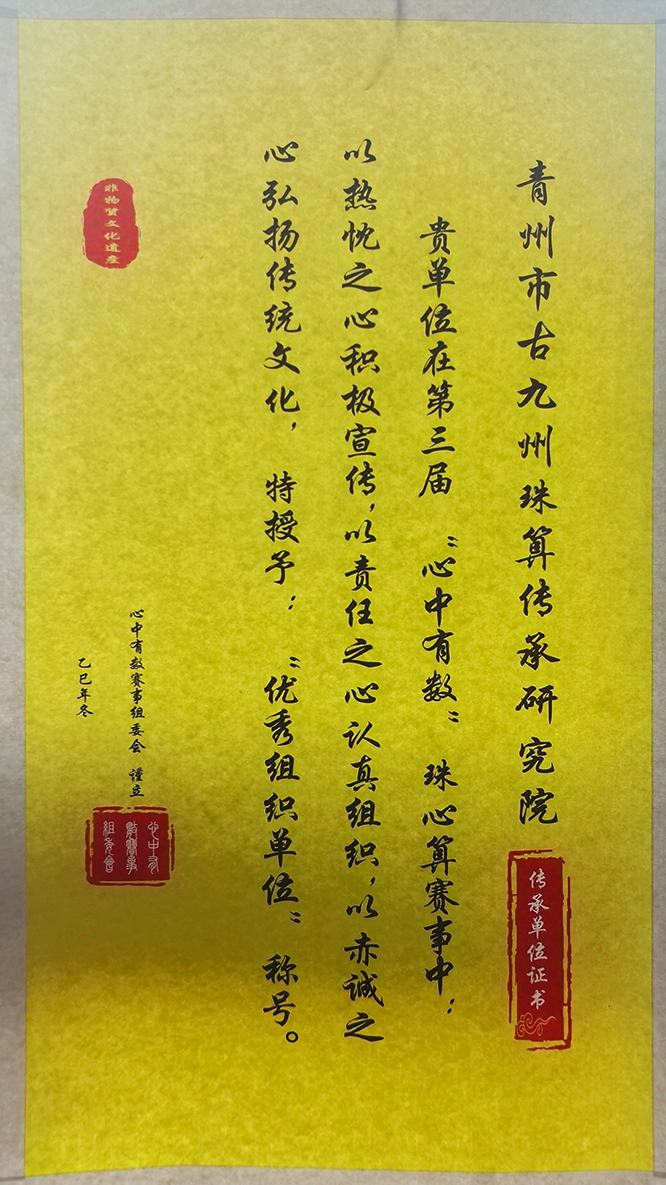 青州市古九州珠算传承研究院
传承单位证书
贵单位在第三届“心中有数”珠心算赛事中：
以热忱之心积极宣传，以责任之心认真组织，以赤诚之
心弘扬传统文化，特授予：“优秀组织单位”称号。
心中有数赛事组委会 谨立
心中有
数赛事
组委会
乙巳年冬
非物质文化遗产